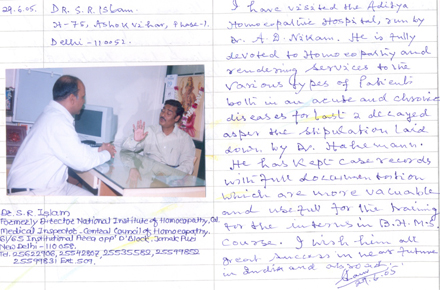 29.6.05.
DR. S. R. Islam.
H-75, Ashok vihar, Phase-I.
Delhi-110052.
Dr. S.R Islam
Formerly Director National Institute of Homoeopathy, Cal.
Medical Inspector- Central Council of Homoeopathy.
61/65 Institutional Area opp 'D' Block, Janak Puri
New Delhi - 110 058.
Tel. 25622906, 25542807, 25535582, 25599852
25599831 Ext. 501.
I have visited the Aditya
Homoeopathic Hospital, run by
Dr. A. D. Nikam. He is fully
devoted to Homoeopathy and
rendering services to the
various types of Patients
both in an acute and chronic
diseases for last 2 decayed
as per the Stipulation laid
down by Dr. Hahemann.
He has kept case records
with full documentation
which are more valuable
and useful for the training
for the interns in B.H.M.S.
Course. I wish him all
great success in near future
in India and abroad.
29.6.05